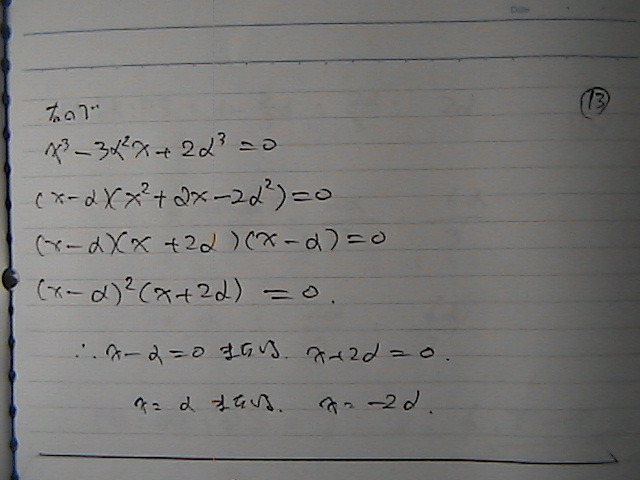 ⑬
なので
x³-3α²x+2α³=0
(x-α)(x²+αx-2α²)=0
(x-α)(x+2α)(x-α)=0
(x-α)²(x+2α)=0.
∴x-α=0 または. x+2α=0.
x=α または. x=-2α.